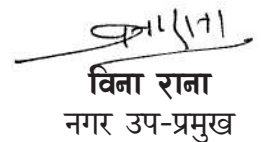 विना राना
नगर उप-प्रमुख